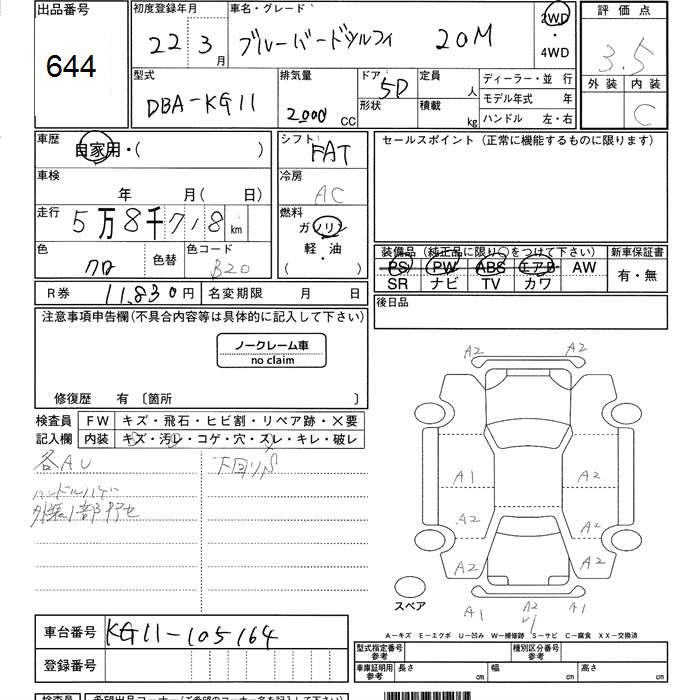 出品番号
644
初度登録年月 22 3 月
車名・グレード ブルーバードシルフィ 20M
2WD
・
4WD
評価点
3.5
外装 内装
C
型式 DBA-KG11
排気量 2000 cc
ドア 5D
形状
定員 人
積載 kg
ディーラー・並 行
モデル年式 年
ハンドル 左・右
車歴 自家用・( )
シフト FAT
セールスポイント (正常に機能するものに限ります)
車検 年 月( 日)
冷房 AC
走行 5万8千718 km
燃料 ガソリン
軽・油
( )
色 クロ 色替
色コード B20
装備品 (純正品に限り○をつけて下さい)
新車保証書
PS PW ABS エアB AW
SR ナビ TV カワ
有・無
R券 11,830円
名変期限 月 日
後日品
注意事項申告欄(不具合内容等は具体的に記入して下さい)
ノークレーム車
no claim
修復歴 有 〔箇所 〕
検査員
記入欄
FW キズ・飛石・ヒビ割・リペア跡・×要
内装 キズ・汚・コゲ・穴・スレ・キレ・破レ
各AU
ハンドルハゲ
外装1部
下回りS
A2 A2
A1 A2
A2 A2
A2 A2
A1 A2 A1
U1
スペア
A—キズ E—エクボ U—凹み W—補修跡 S—サビ C—腐食 XX—交換済
車台番号 KG11-105164
登録番号
型式指定番号
参考
種別区分番号
参考
車庫証明用
参考
長さ cm
幅 cm
高さ cm
検査員
希望出品コーナー(ご希望のコーナー名を記入下さい)